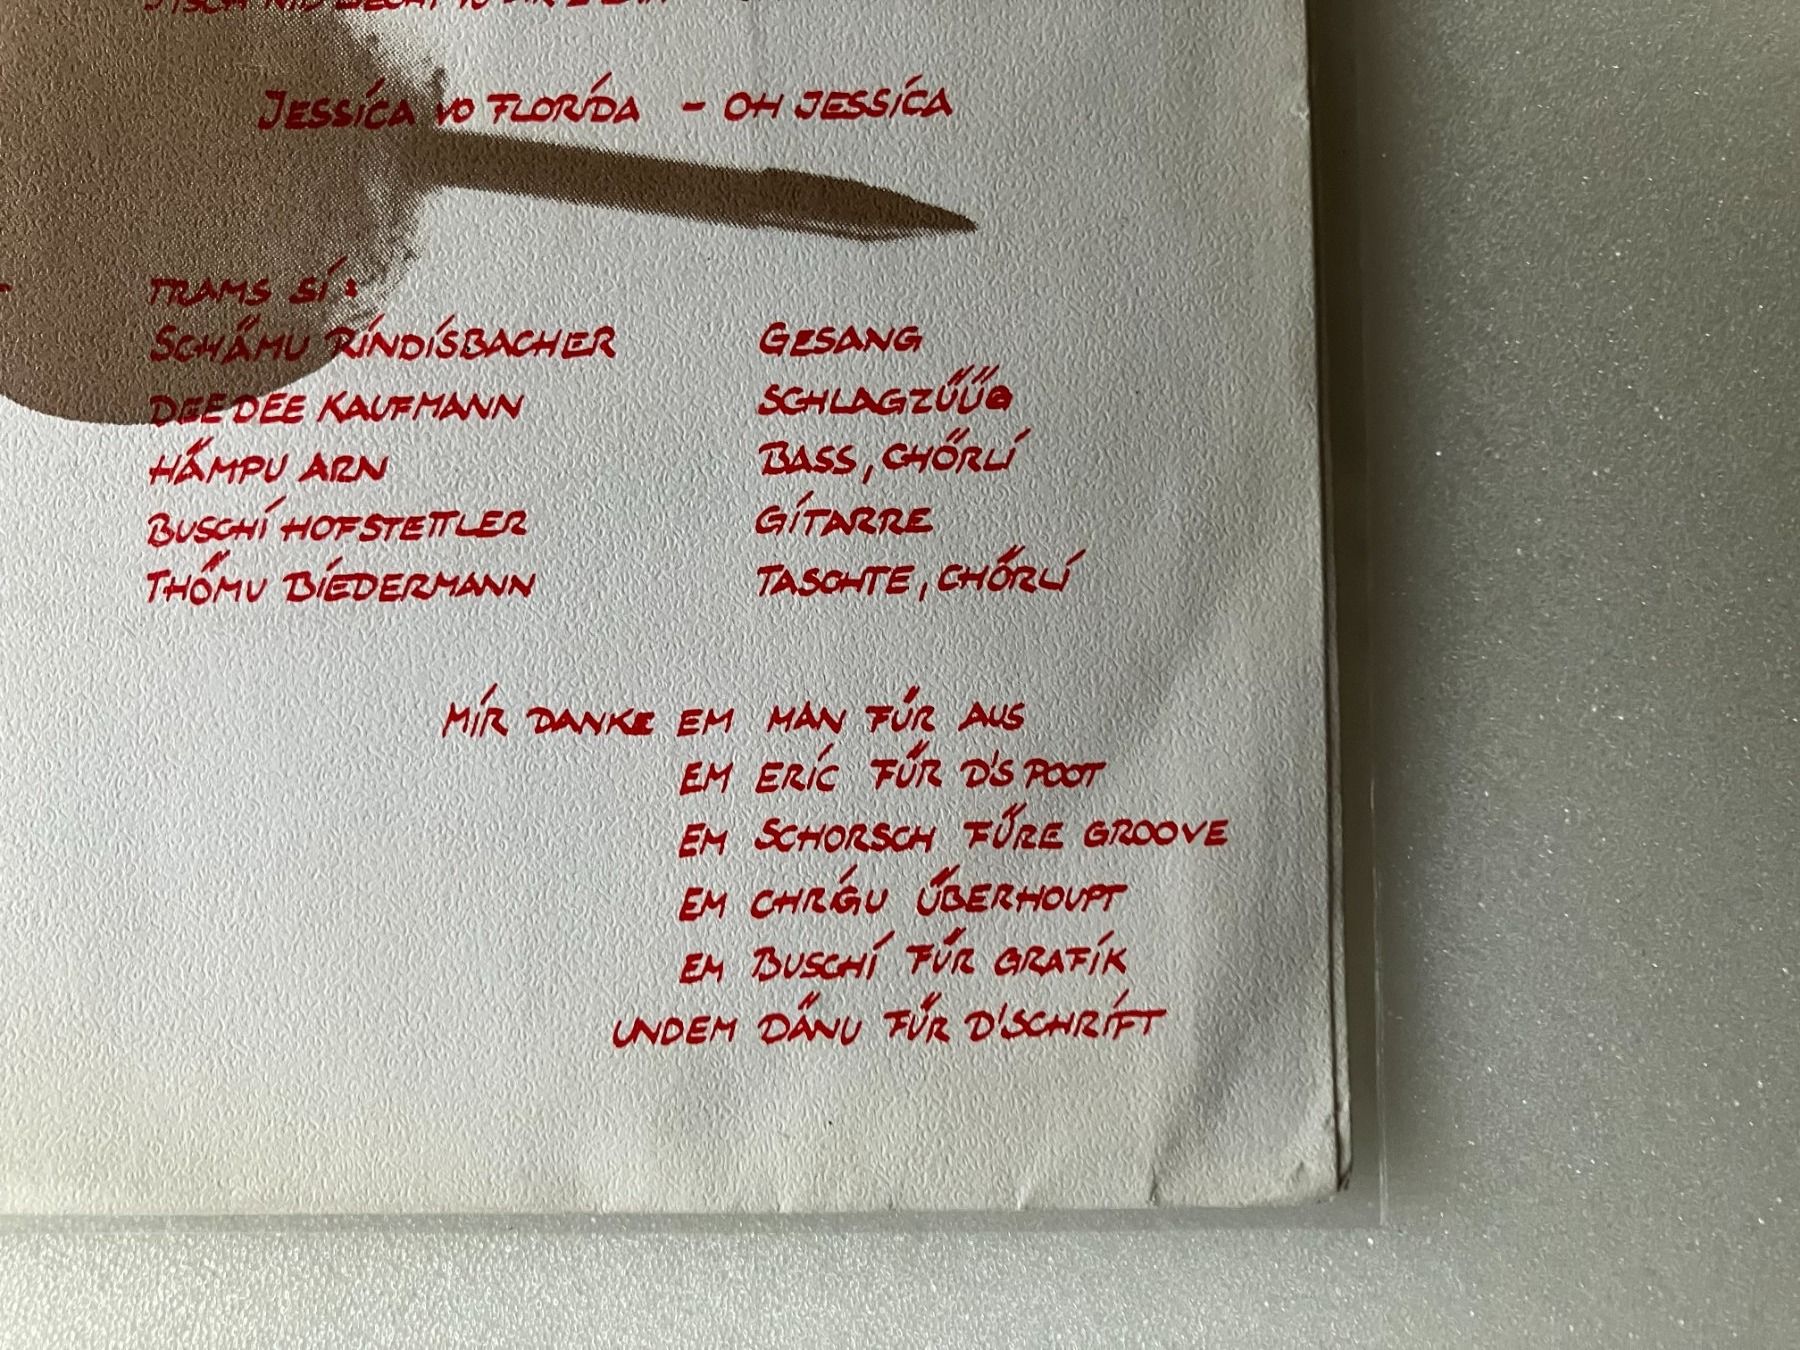 JESSICA VO FLORIDA - OH JESSICA
TRAMS SI:
SCHÄMU RINDISBACHER GESANG
DEE DEE KAUFMANN SCHLAGZÜÜG
HÄMPU ARN BASS, CHÖRLI
BUSCHI HOFSTETTLER GITARRE
THÖMU BIEDERMANN TASCHTE, CHÖRLI
MIR DANKE EM MÄN FÜR AUS
EM ERIC FÜR D'S POOT
EM SCHORSCH FÜRE GROOVE
EM CHRIGU ÜBERHOUPT
EM BUSCHI FÜR GRAFIK
UNDEM DÄNU FÜR D'SCHRIFT